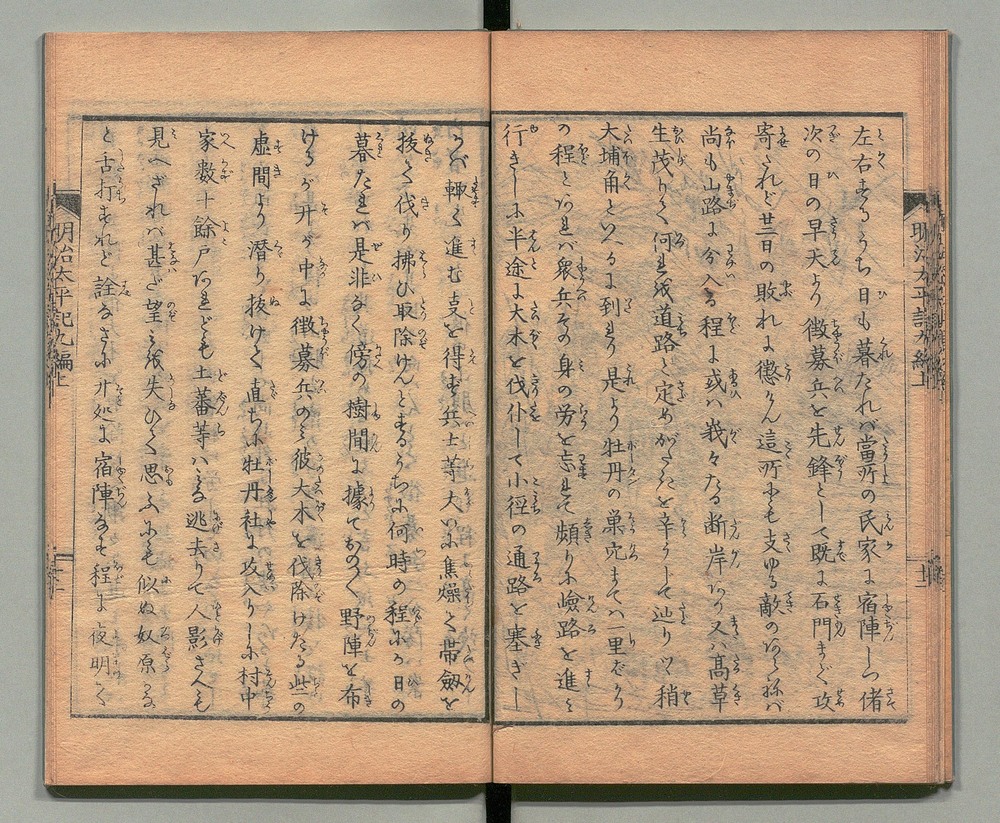 左右するうち日も暮たれバ當所の民家に宿陣しつ偖
次の日の早天より徴募兵を先鋒として既に石門まで攻
寄されど廿二日の敗れに懲けん這所にも支ゆる敵のあらねバ
尚も山路に分入る程に或ハ峩々たる断岸あり又ハ髙草
生茂りて何れを道路と定めがたきを辛うして辿りツヽ稍
大埔角といへるに到れり是より牡丹の巣穴まてハ一里ばかり
の程とあれバ衆兵その身の労を忘れて頻りに嶮路を進ミ
行きしに半途に大木を伐仆して小徑の通路を塞ぎし
うバ輙く進む事を得ず兵士等大いに焦燥て帯劔を
抜きて伐り拂ひ取除けんとするうちに何時の程にか日の
暮たれバ是非なく傍の樹間に據ておのおの野陣を布
けるが廾が中に徴募兵のミ彼大木を伐除けたる些の
虚間より潜り抜けて直ちに牡丹社に攻入りしに村中
家数十餘戸あれども土蕃等ハみな逃去りて人影さへも
見へざれバ甚だ望ミを失ひて思ふにも似ぬ奴原かな
と舌打すれど詮なさに廾処に宿陣なす程に夜明て
明治太平記九編上
明治太平記九編上